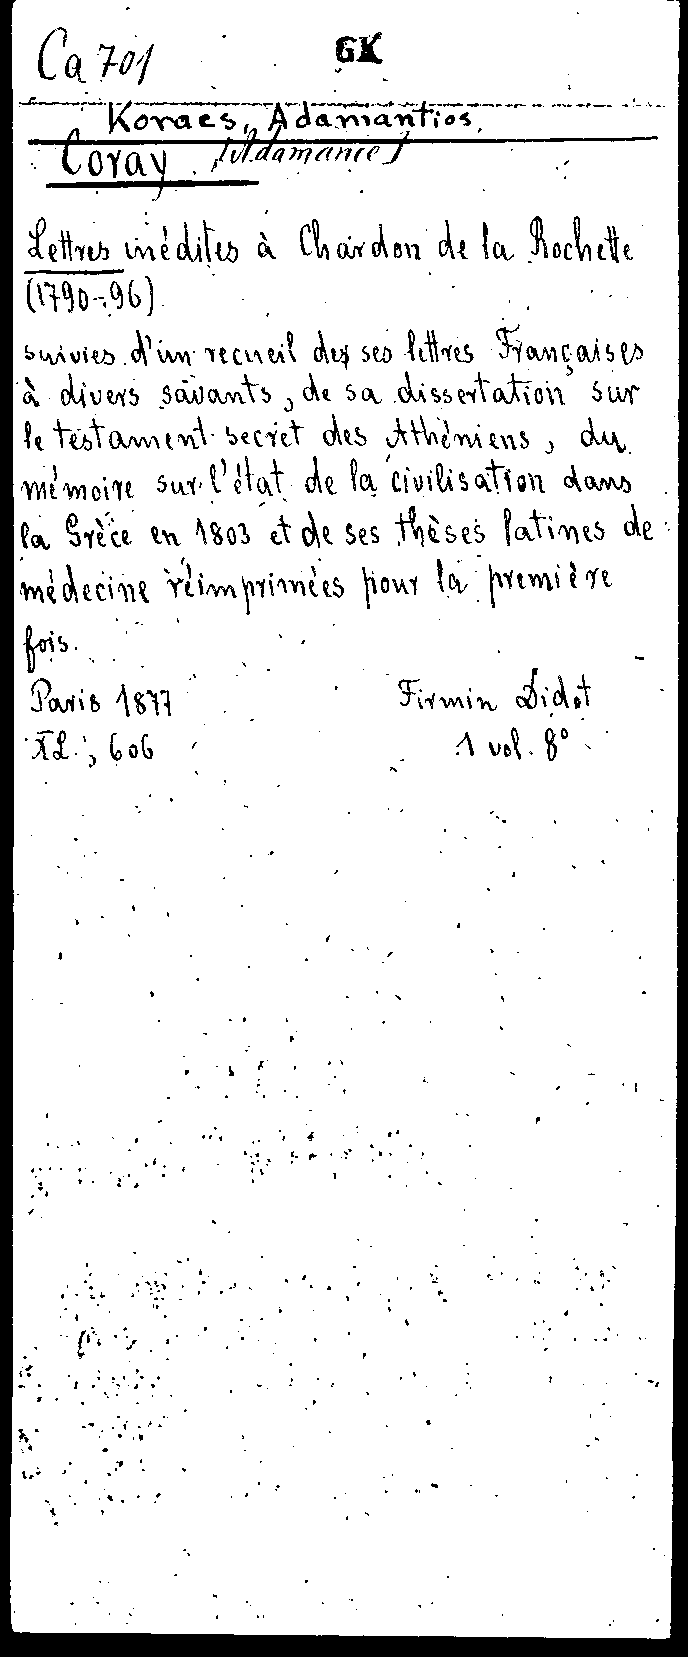 Ca 701
GK
Koraes, Adamantios.
Coray [Adamance]
Lettres inédites à Chardon de la Rochette
(1790-96)
suivies d'un recueil de ses lettres Françaises
à divers savants, de sa dissertation sur
le testament secret des Athéniens, du
mémoire sur l'état de la civilisation dans
la Grèce en 1803 et de ses thèses latines de
médecine réimprimées pour la première
fois.
Paris 1877 Firmin Didot
XL, 606 1 vol. 8°